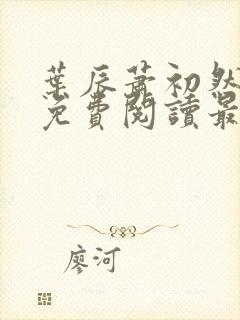 葉辰蕭初然
免費閱讀最
廖河